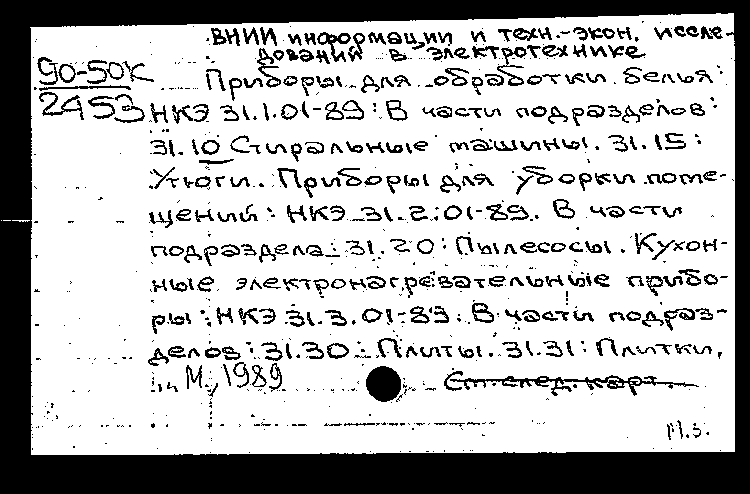 ВНИИ информации и техн.-экон. иссле-
дований в электротехнике
90-50К
2453
Приборы для обработки белья:
НКЭ 31.1.01-89: В части подразделов:
31.10 Стиральные машины. 31.15:
Утюги. Приборы для уборки поме-
щений: НКЭ 31.2.01-89. В части
подраздела 31.20: Пылесосы. Кухон-
ные электронагревательные прибо-
ры: НКЭ 31.3.01-89. В части подраз-
делов: 31.30: Плиты. 31.31: Плитки,
М., 1989
См. след. карт.
М.З.